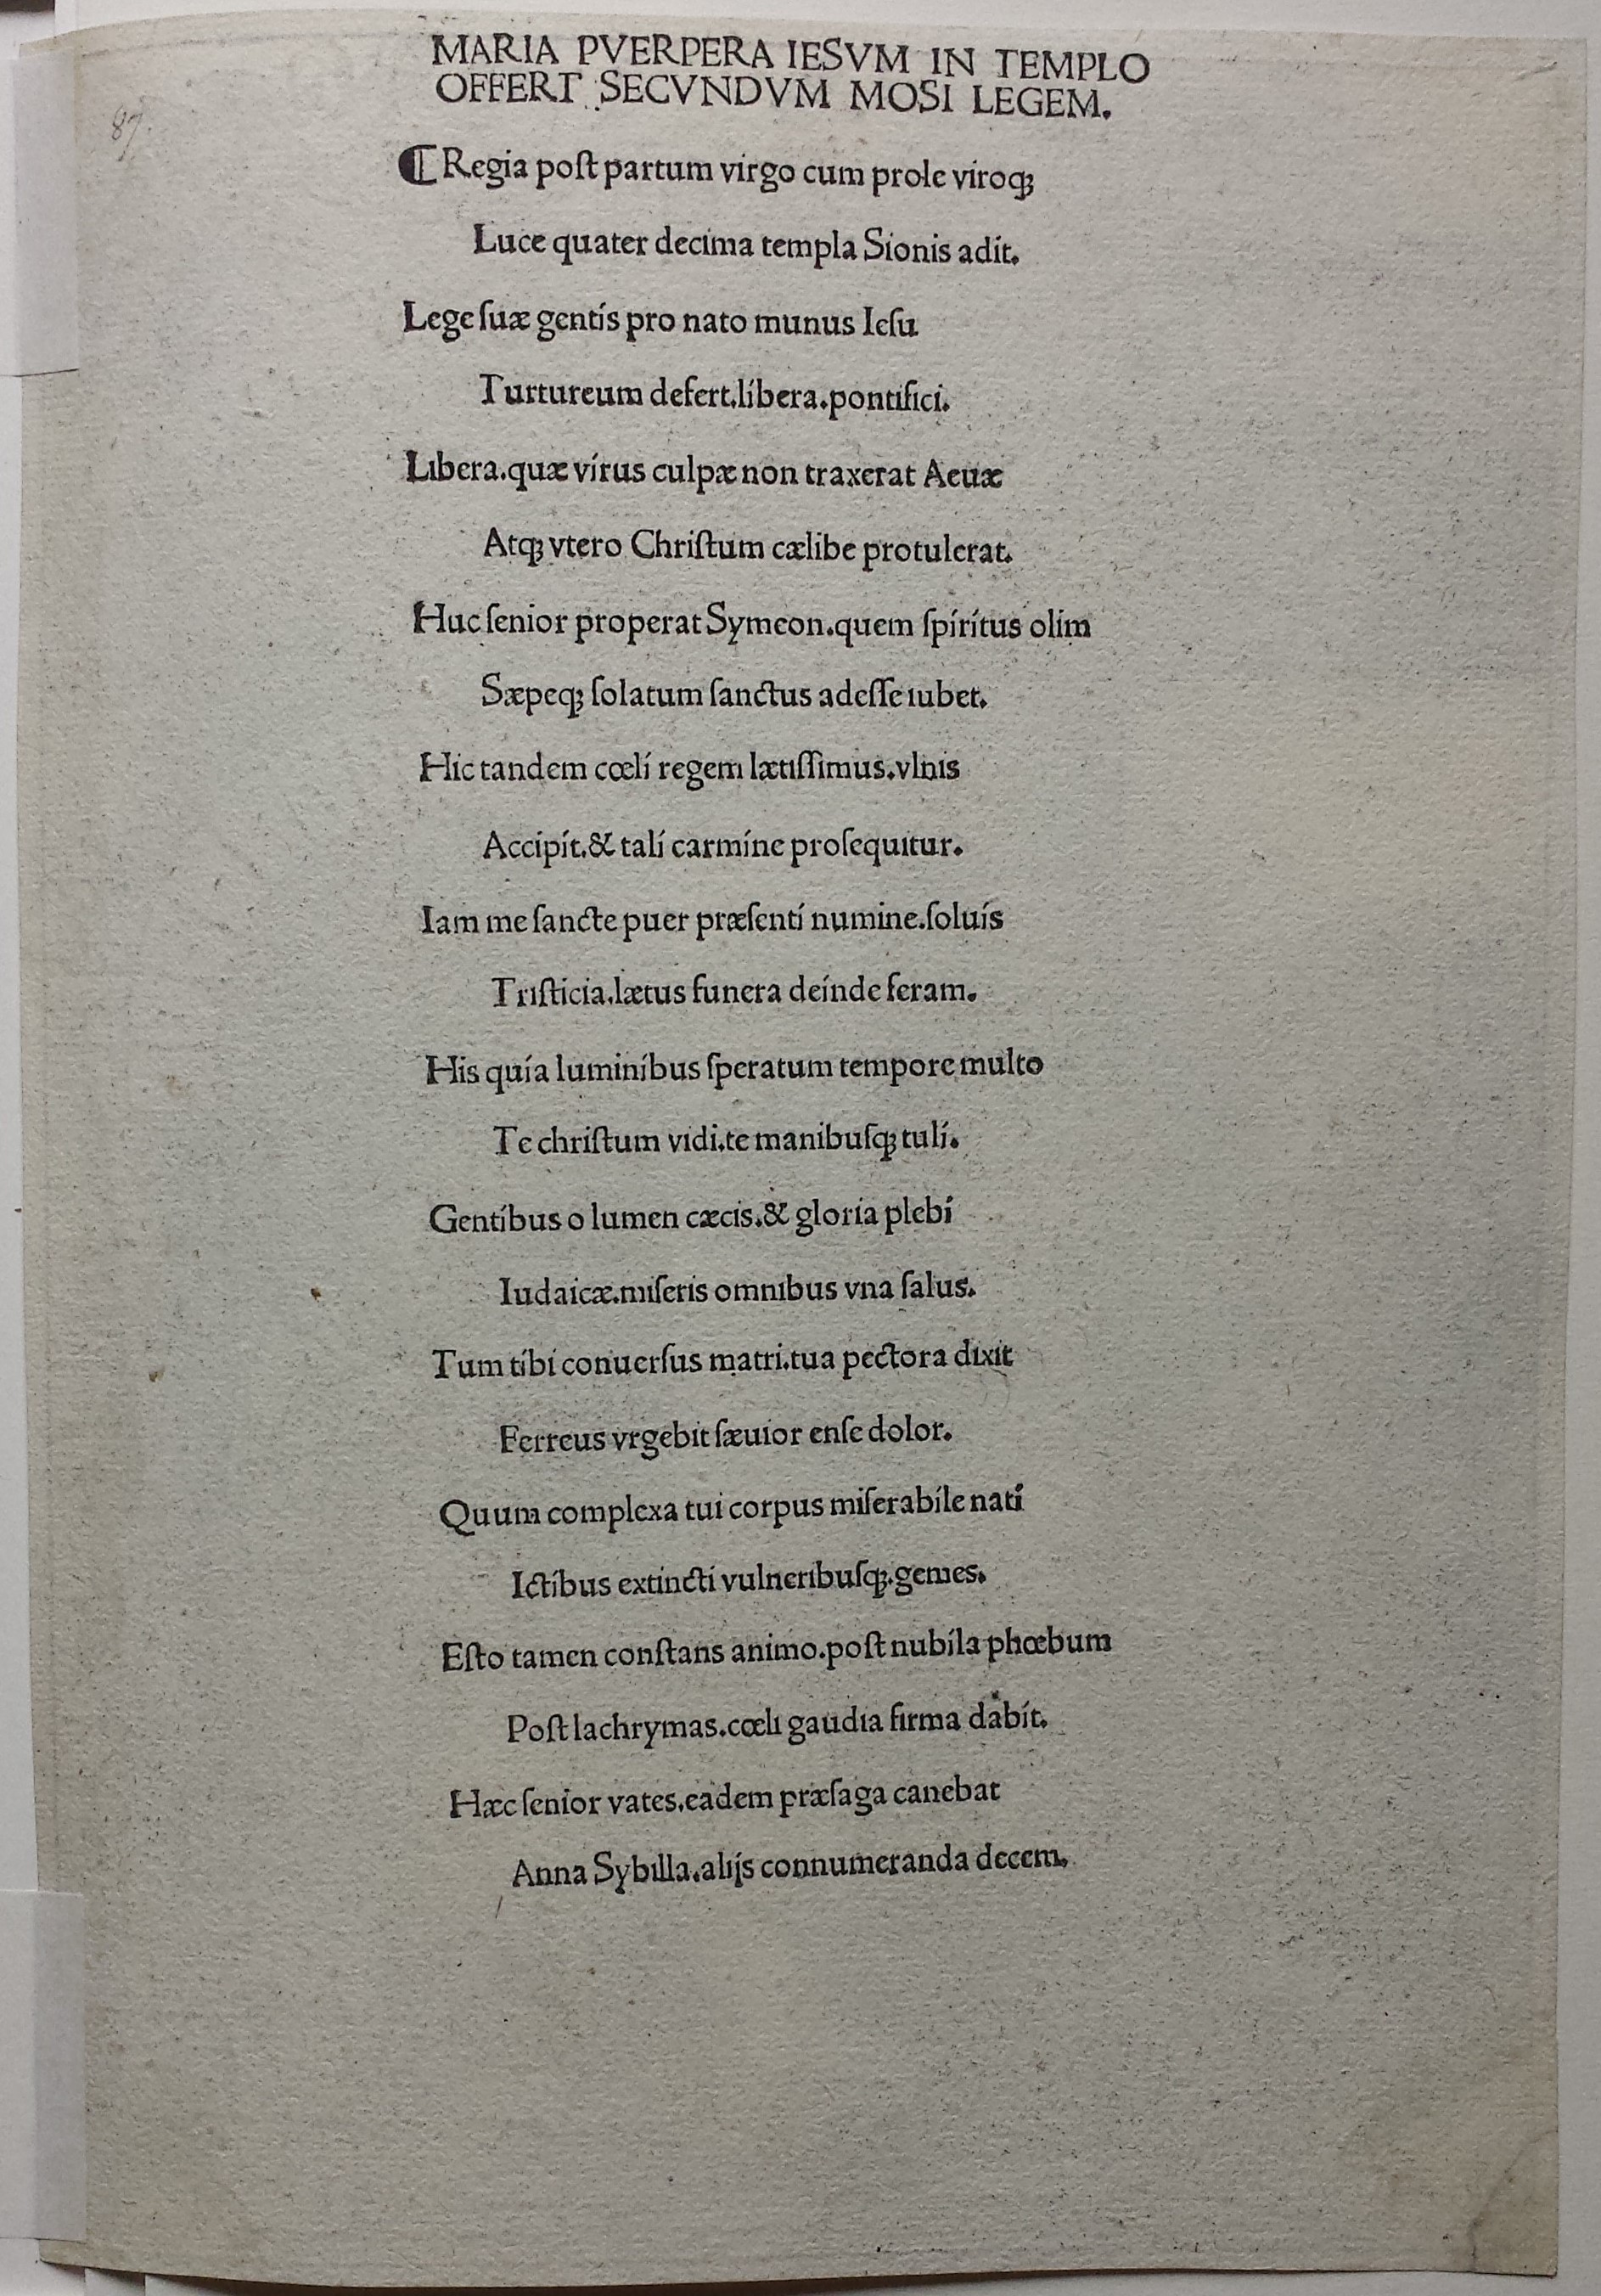 MARIA PVERPERA IESVM IN TEMPLO
OFFERT SECVNDVM MOSI LEGEM.
87.
⸿ Regia poſt partum virgo cum prole viroqꝫ
Luce quater decima templa Sionis adit.
Lege ſuæ gentis pro nato munus Ieſu
Turtureum defert.libera.pontifici.
Libera.quæ virus culpæ non traxerat Aeuæ
Atqꝫ vtero Chriſtum cælibe protulerat.
Huc ſenior properat Symeon.quem ſpiritus olim
Sæpeqꝫ ſolatum ſanctus adeſſe iubet.
Hic tandem cœli regem lætiſſimus.vlnis
Accipit.& tali carmine proſequitur.
Iam me ſancte puer præſenti numine.ſoluis
Triſticia.lætus funera deinde feram.
His quia luminibus ſperatum tempore multo
Te chriſtum vidi.te manibuſqꝫ tuli.
Gentibus o lumen cæcis.& gloria plebi
Iudaicæ.miſeris omnibus vna ſalus.
Tum tibi conuerſus matri.tua pectora dixit
Ferreus vrgebit ſæuior enſe dolor.
Quum complexa tui corpus miſerabile nati
Ictibus extincti vulneribuſqꝫ.gemes.
Eſto tamen conſtans animo.poſt nubila phœbum
Poſt lachrymas.cœli gaudia firma dabit.
Hæc ſenior vates.eadem præſaga canebat
Anna Sybilla.alijs connumeranda decem.